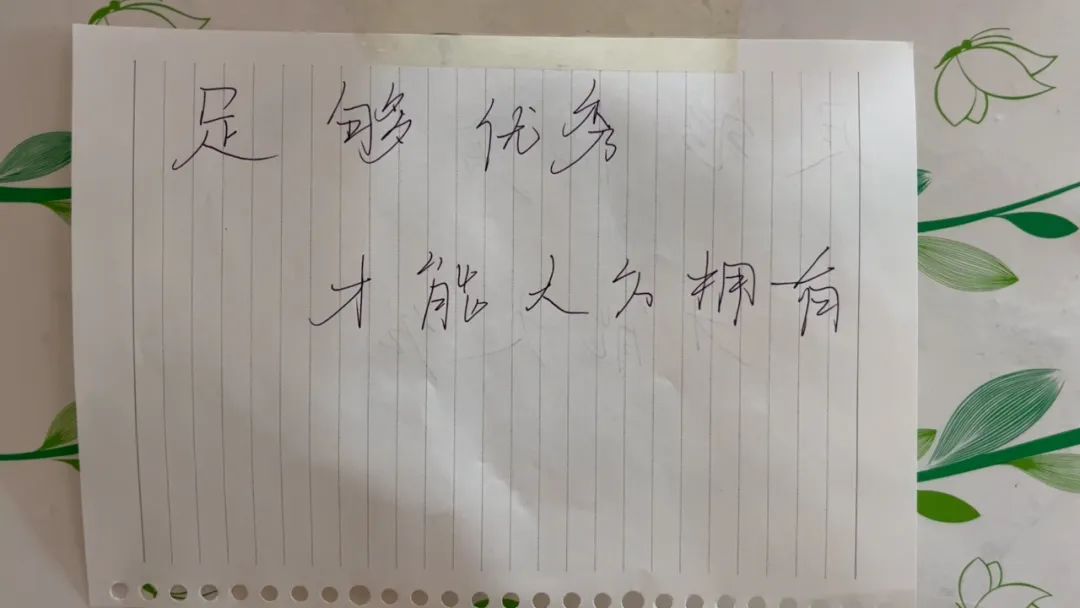 足够优秀
才能大方拥有